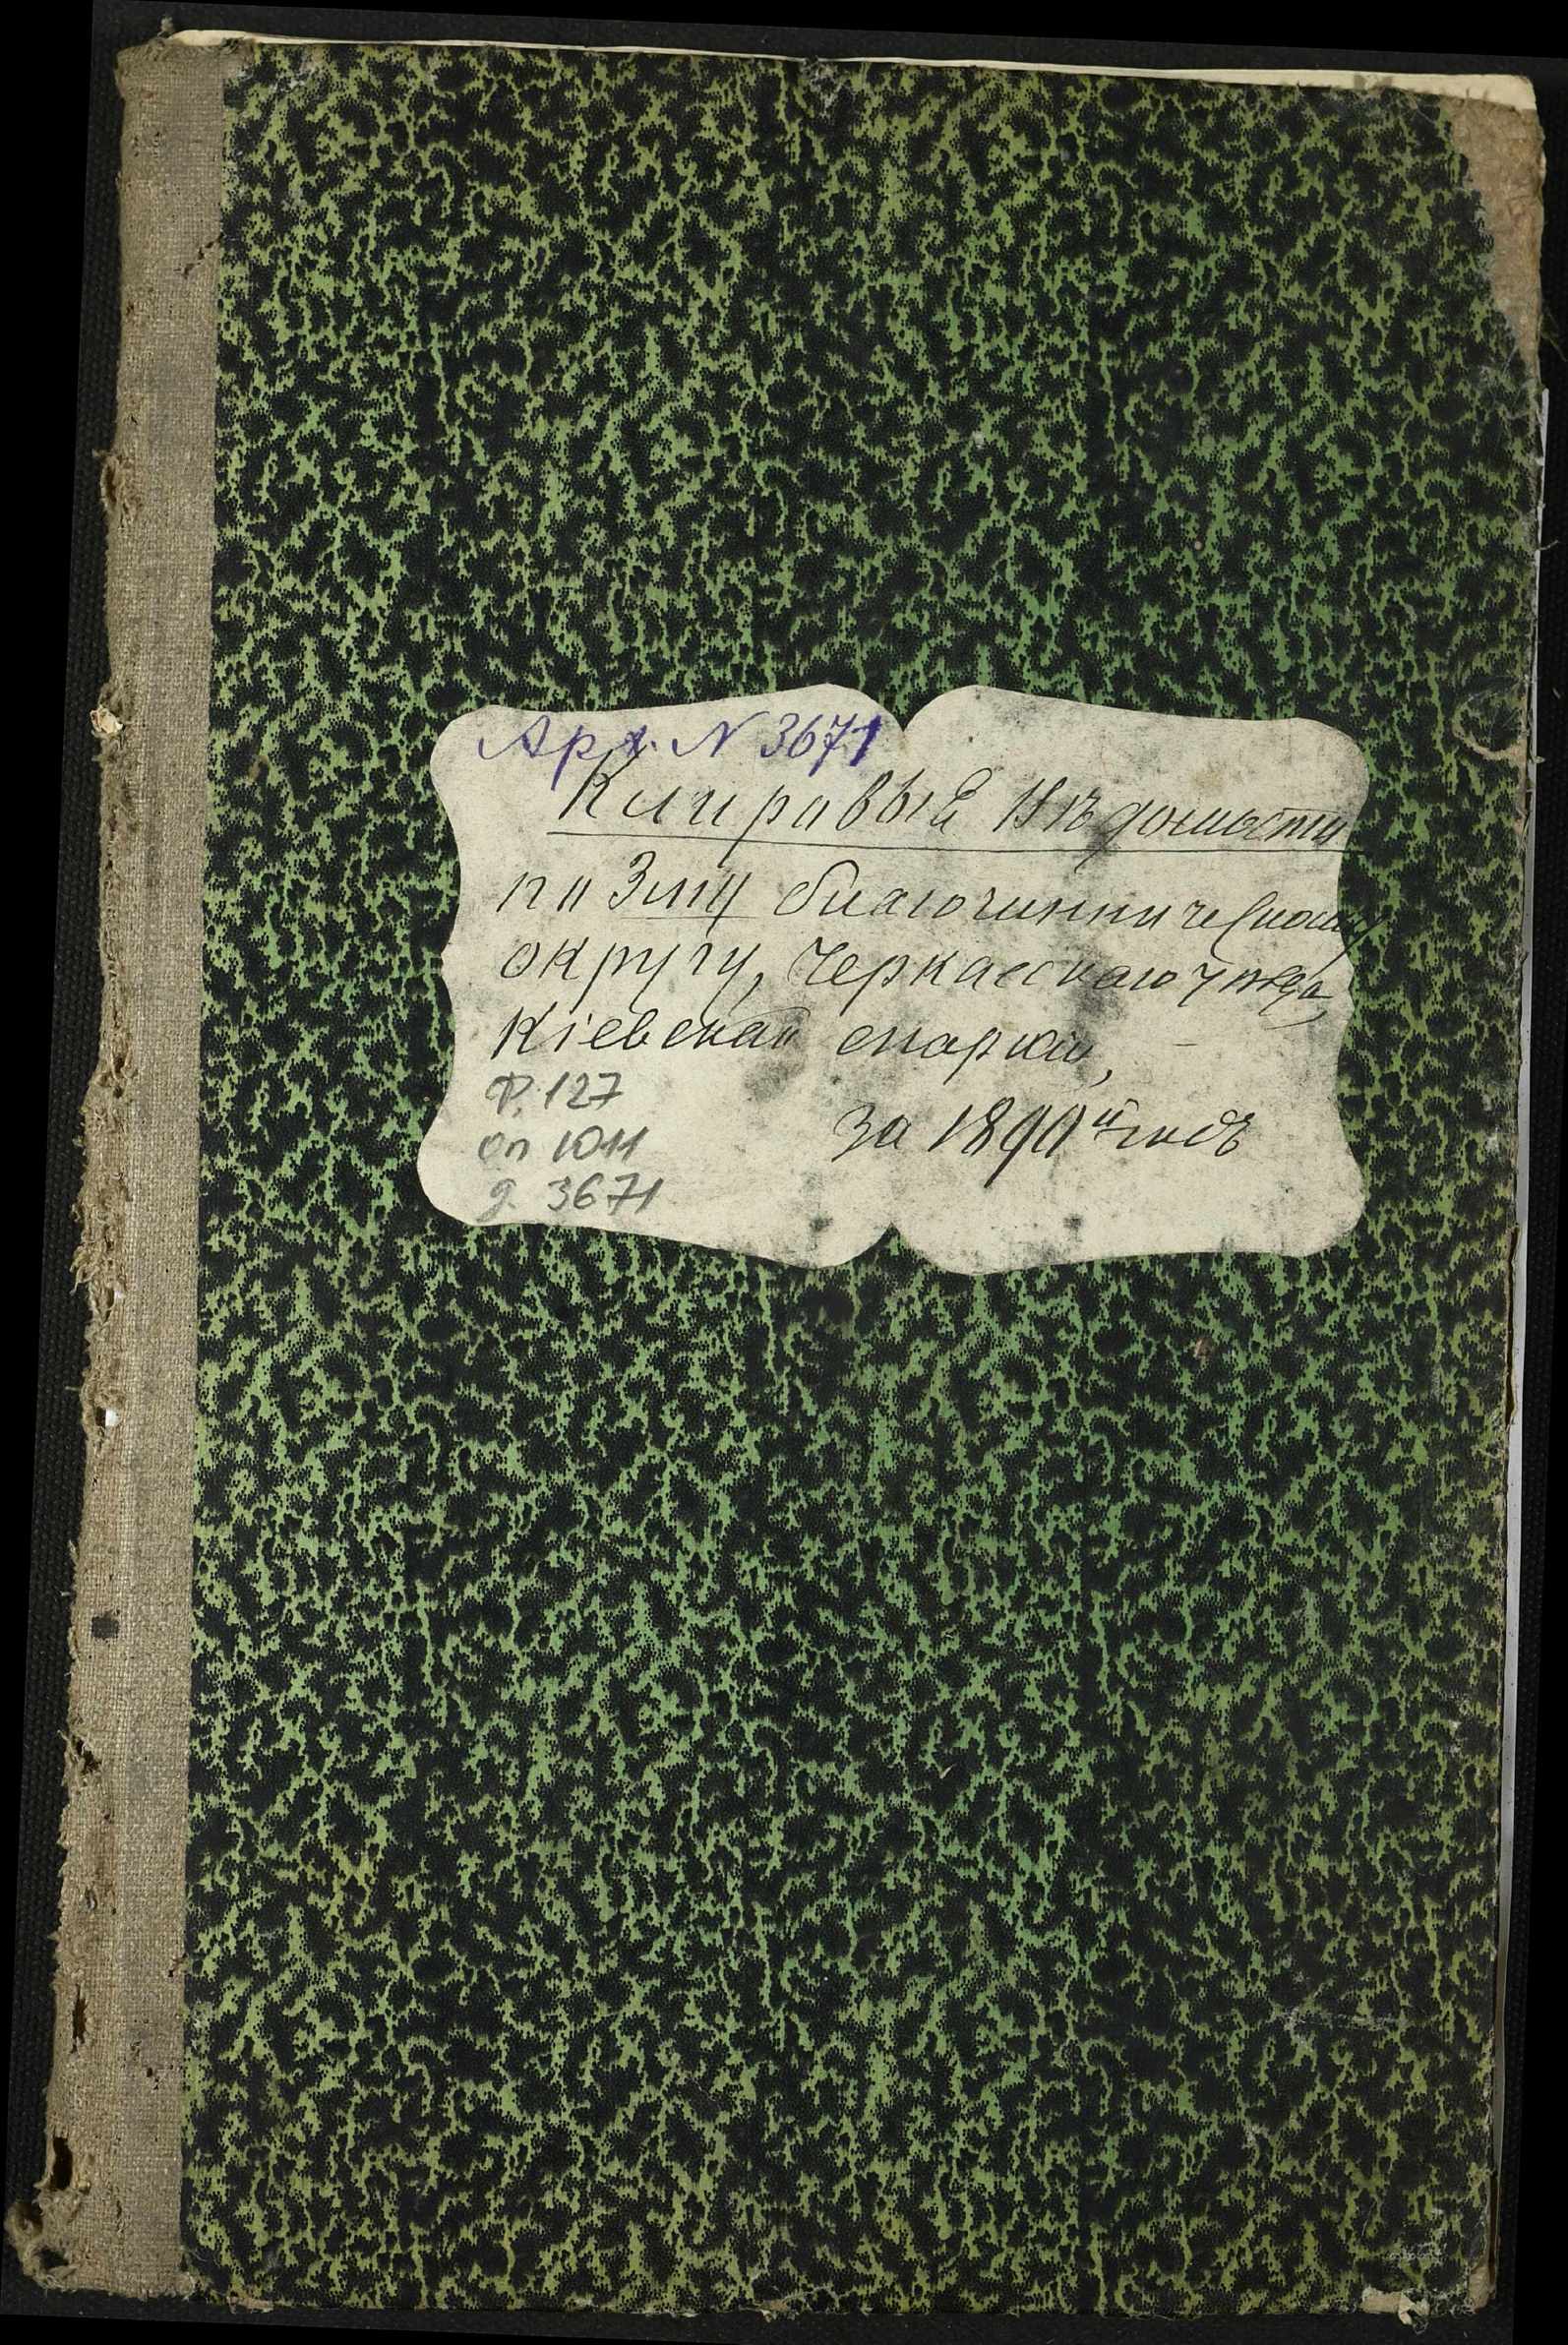 Арх. N 3671
Клировыя Вѣдомости
по 3му благочинническому
округу, Черкасскаго уѣзда,
Кіевской епархіи,
за 1890й годъ
Ф. 127
оп 1011
д. 3671